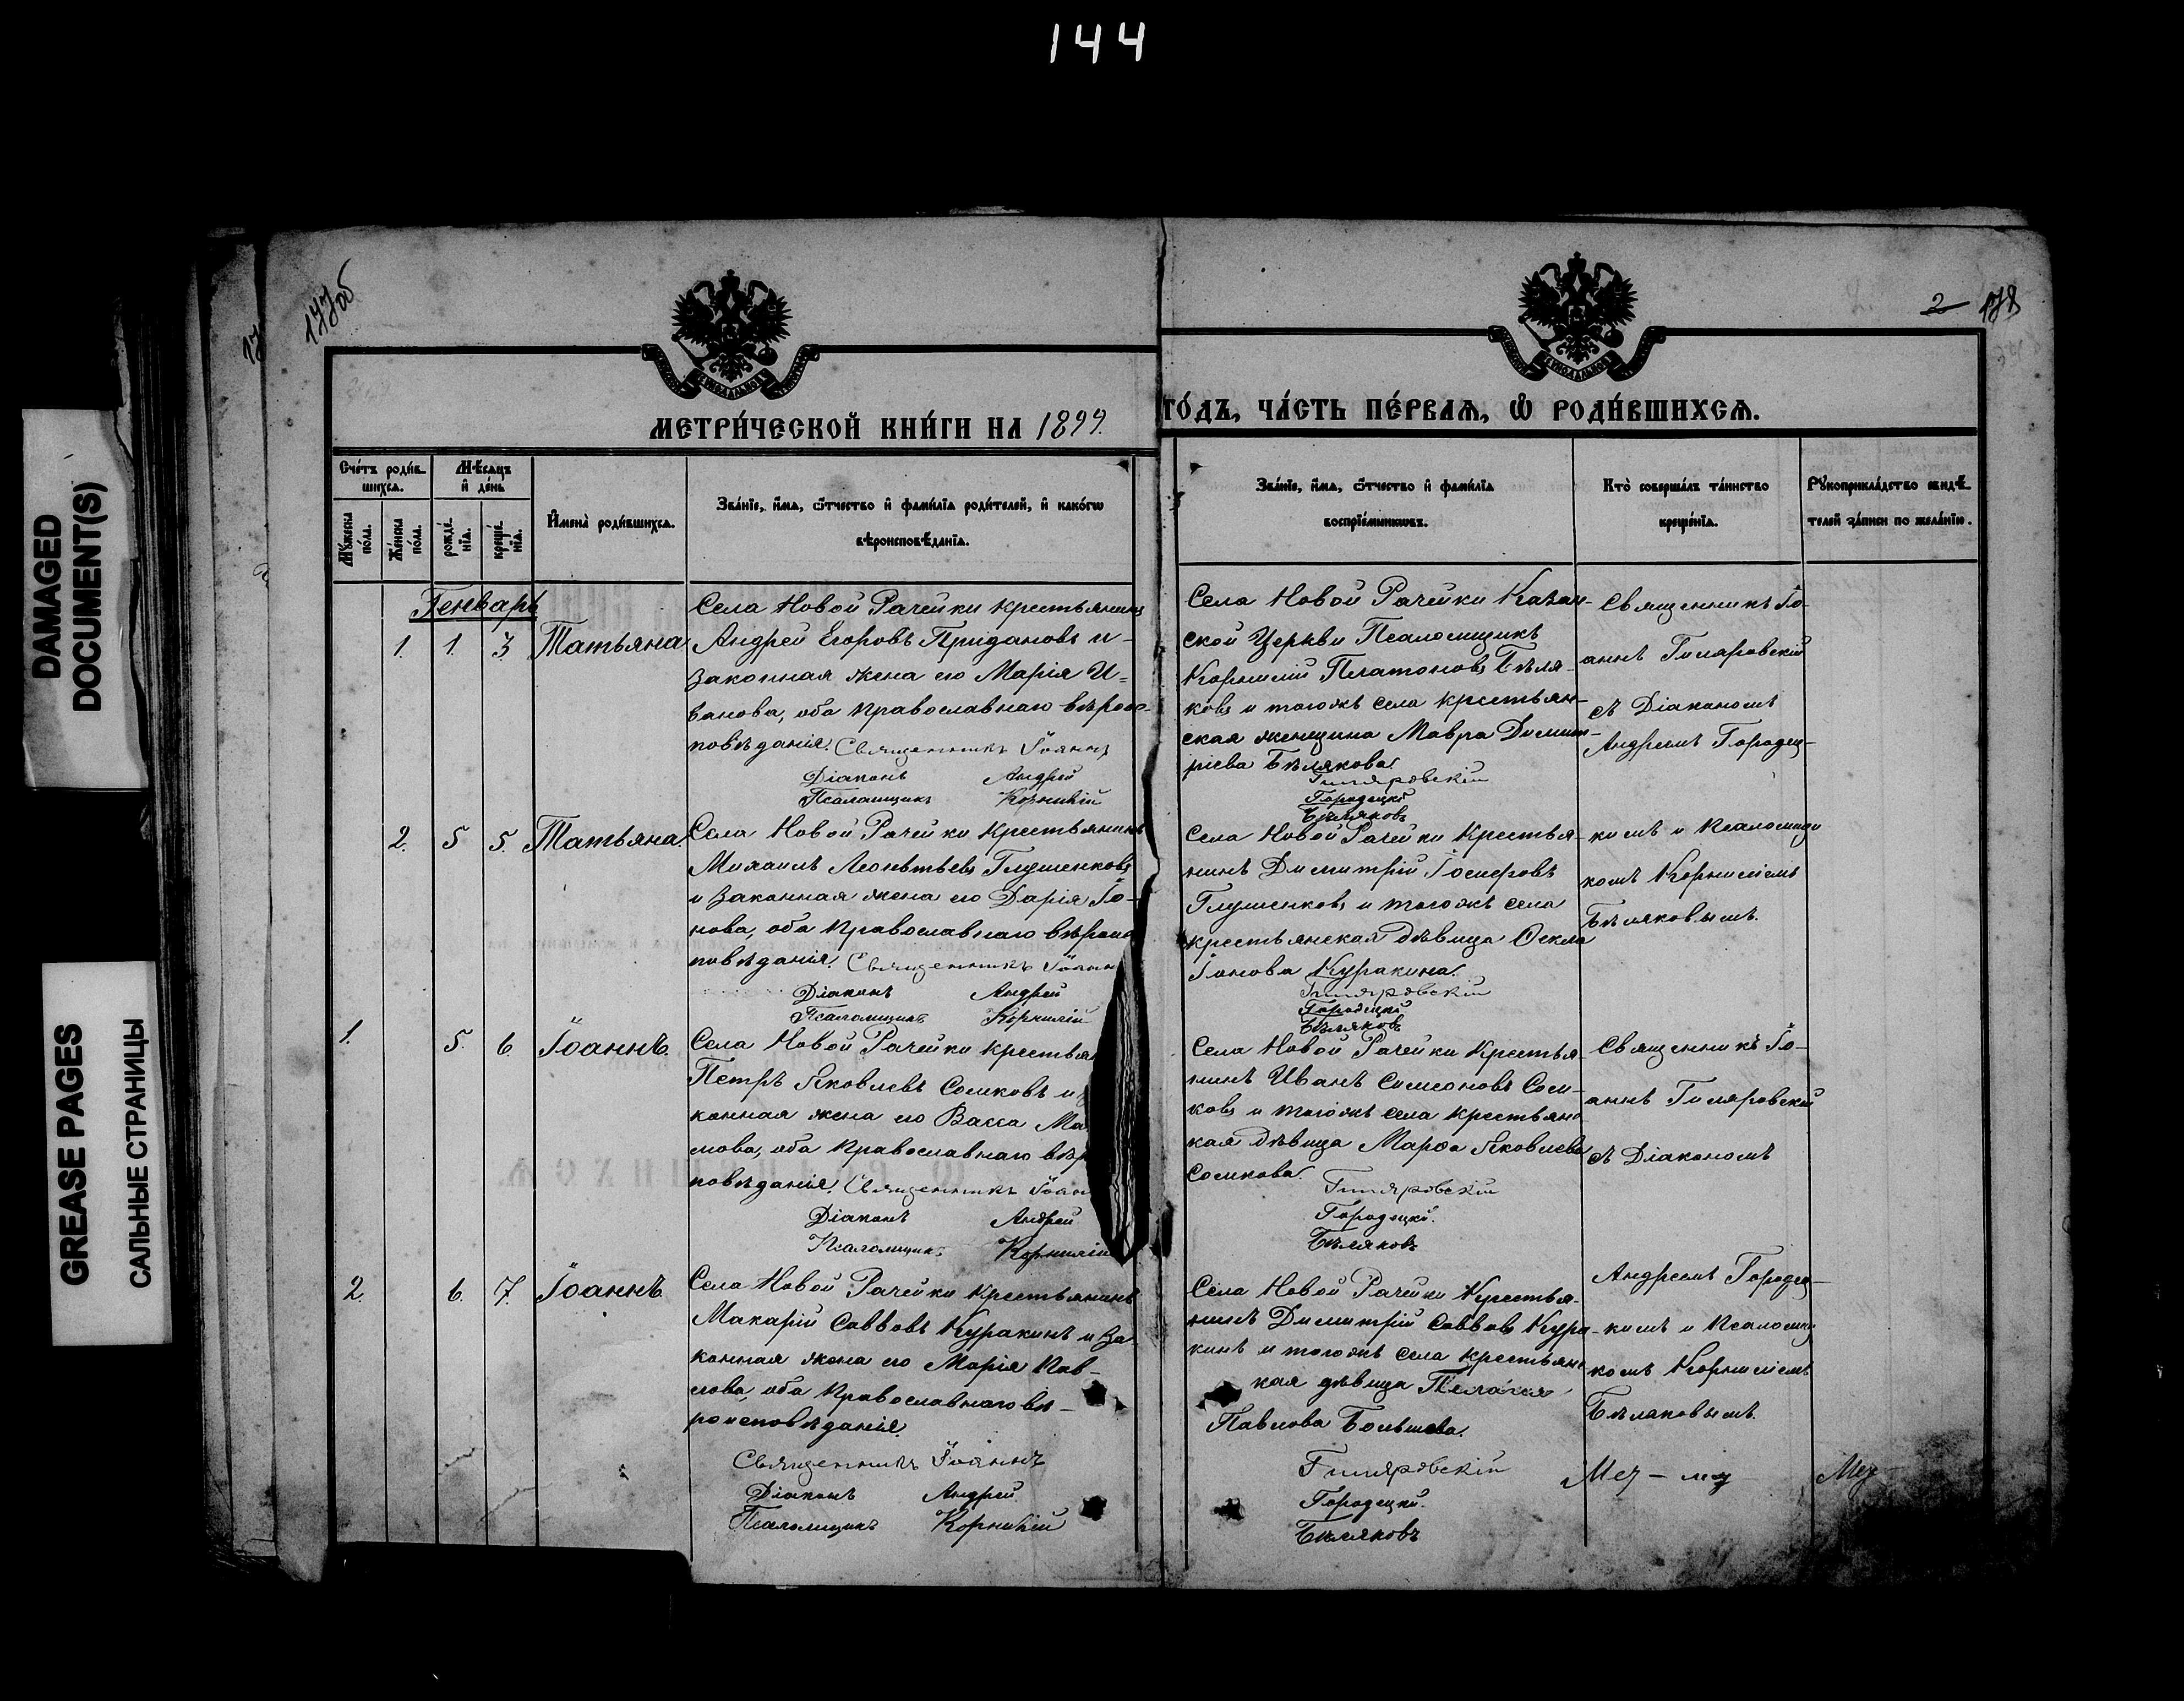 144
DAMAGED
DOCUMENT(S)
GREASE PAGES
САЛЬНЫЕ СТРАНИЦЫ
177об
2 178
МЕТРИ́ЧЕСКОЙ КНИ́ГИ НА 1899.
ГО́ДЪ, ЧА́СТЬ ПЕ́РВАѦ, Ѡ РОДИ́ВШИХСѦ.
Сче́тъ роди́в-
шихсѧ.
Мꙋ́жеска по́ла.
Же́нска по́ла.
Мѣ́сѧцъ
и де́нь
рожде́-
нїѧ.
креще́-
нїѧ.
Имена̀ роди́вшихсѧ.
Зва́нїе, и́мѧ, ѻ́тчество и фами́лїѧ роди́телей, и како́гѡ
вѣроисповѣ́данїѧ.
Зва́нїе, и́мѧ, ѻ́тчество и фами́лїѧ
воспрїе́мникѡвъ.
Кто̀ соверша́лъ та́инство
креще́нїѧ.
Рꙋкоприкла́дство свидѣ́-
телей за́писи по жела́нїю.
Генварь
1. 1. 3. Татьяна
Села Новой Рачейки крестьянинъ
Андрей Егоровъ Придановъ и
законная жена его Марія И-
ванова, оба православнаго вѣроис-
повѣданія. Священникъ Іоаннъ
Діаконъ Андрей
Псаломщикъ Корнилій
Села Новой Рачейки Казан-
ской Церкви Псаломщикъ
Корнилій Платоновъ Бѣля-
ковъ и тогожъ села крестьян-
ская женщина Мавра Димит-
ріева Бѣлякова.
Гиляровскій
Городецкій
Бѣляковъ
Священникъ Іо-
аннъ Гиляровскій
съ Діакономъ
Андреемъ Городец-
2. 5 5. Татьяна.
Села Новой Рачейки крестьянинъ
Михаилъ Леонтьевъ Глушенковъ
и законная жена его Дарія Іо-
нова, оба православнаго вѣроис
повѣданія. Священникъ Іоанн
Діаконъ Андрей
Псаломщикъ Корнилій
Села Новой Рачейки крестья-
нинъ Димитрій Іосифовъ
Глушенковъ и тогожъ села
крестьянская дѣвица Ѳекла
Іонова Куракина.
Гиляровскій
Городецкій
Бѣляковъ
кимъ и псаломщи
комъ Корниліемъ
Бѣляковымъ.
1. 5. 6. Іоаннъ.
Села Новой Рачейки крестья
Петръ Яковлевъ Сомковъ и
конная жена его Васса Ма
мова, оба православнаго вѣр
повѣданія. Священникъ Іоан
Діаконъ Андрей
Псаломщикъ Корнилій
Села Новой Рачейки крестья-
нинъ Иванъ Симеоновъ Сом-
ковъ и тогожъ села крестьянс
кая дѣвица Марѳа Яковлева
Сомкова.
Гиляровскій
Городецкій.
Бѣляковъ
Священникъ Іо-
аннъ Гиляровскій
съ Діакономъ
2. 6. 7. Іоаннъ
Села Новой Рачейки крестьянинъ
Макарій Саввовъ Куракинъ и за-
конная жена его Марія Пав-
лова, оба православнаго вѣ-
роисповѣданія.
Священникъ Іоаннъ
Діаконъ Андрей
Псаломщикъ Корнилій
Села Новой Рачейки крестья-
нинъ Димитрій Саввовъ Кура-
кинъ и тогожъ села крестьянс
кая дѣвица Пелагея
Павлова
Гиляровскій
Городецкій.
Бѣляковъ
Андреемъ Городец-
кимъ и псаломщи
комъ Корниліемъ
Бѣляковымъ.